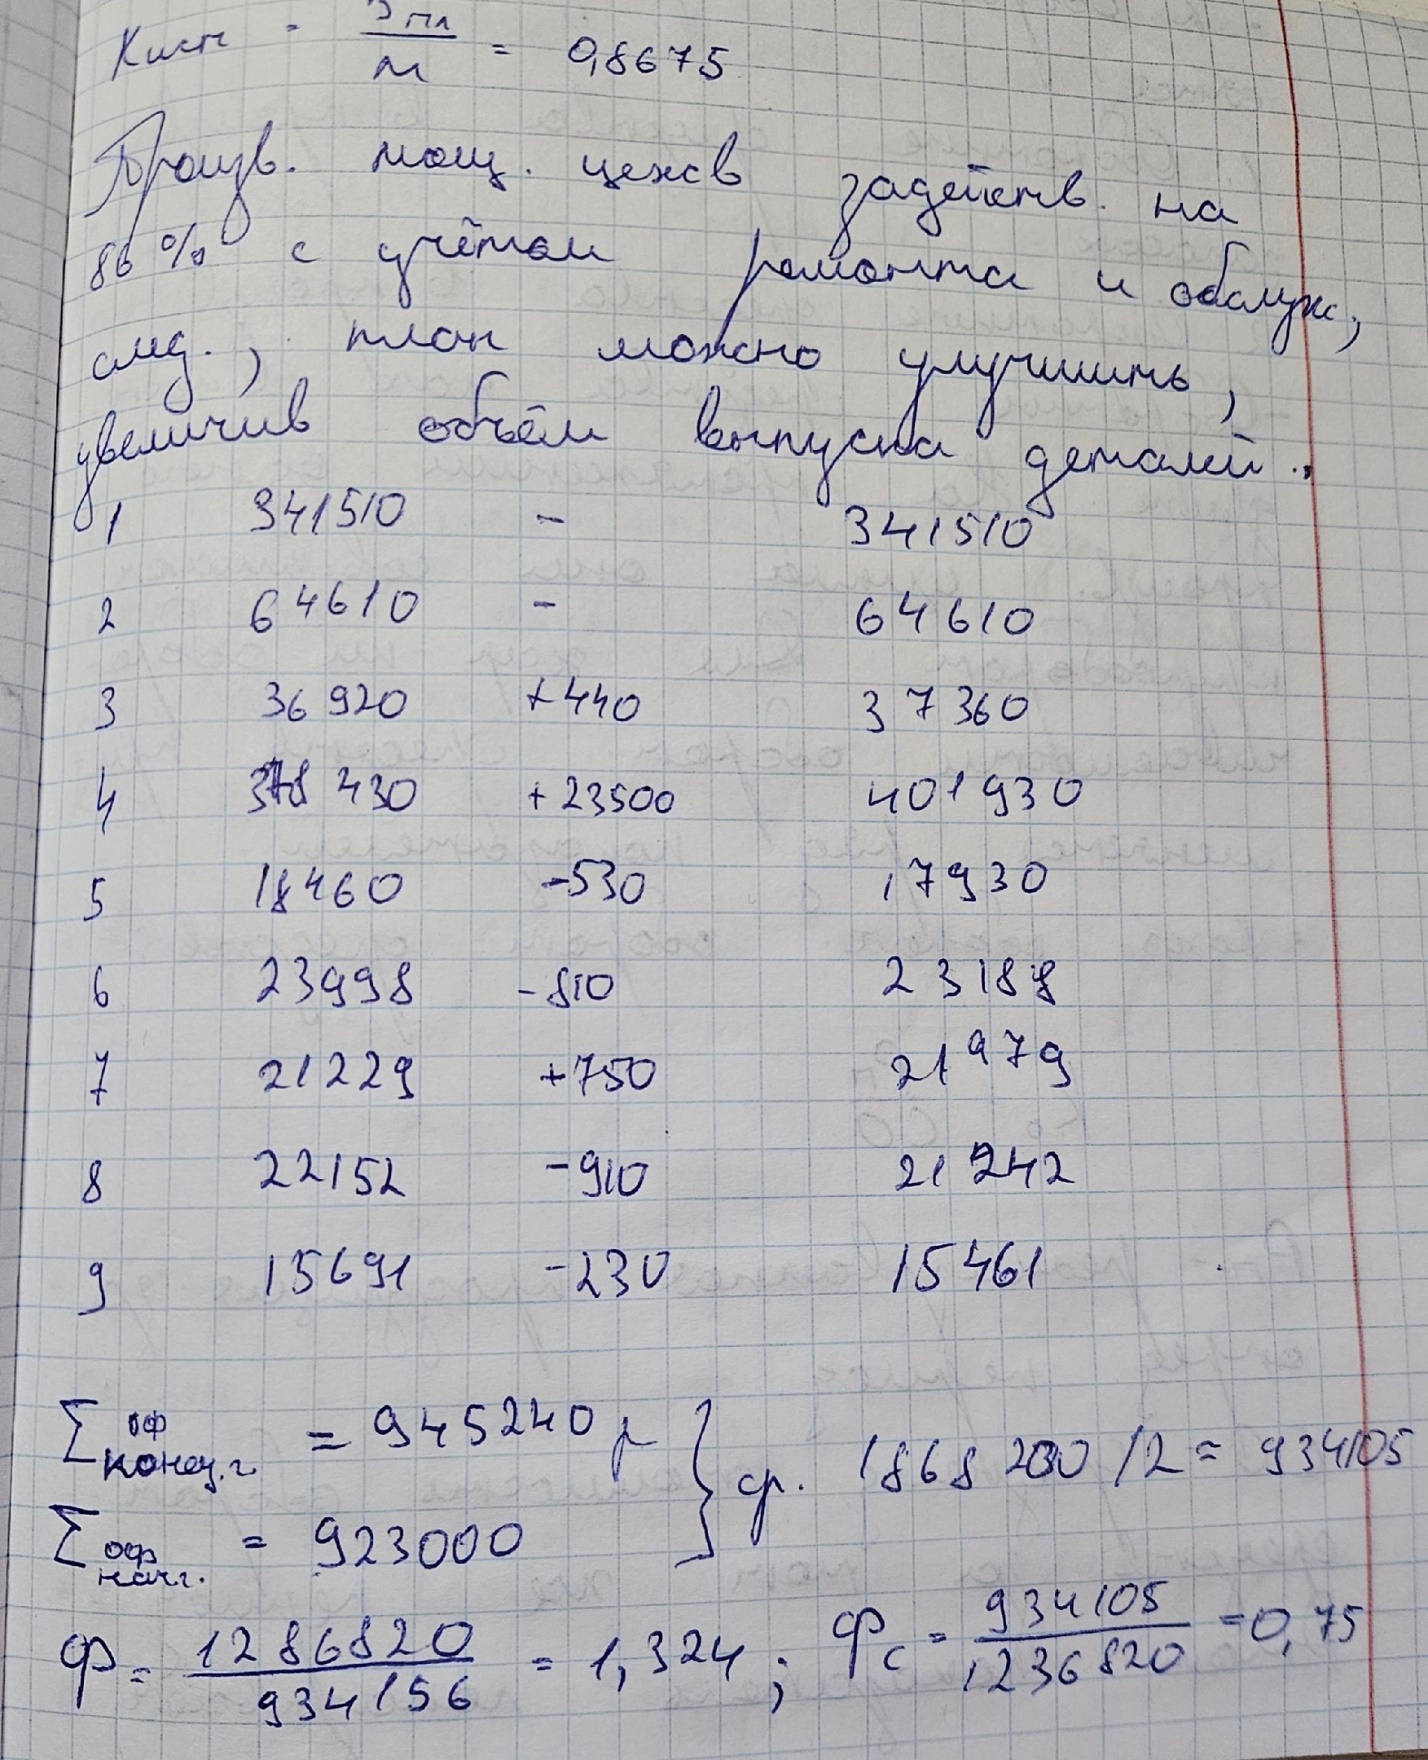 Кисп = Vпл / М = 0,8675
Произв. мощ. цехов задейств. на
86% с учётом ремонта и обслуж,
след., план можно улучшить,
увеличив объём выпуска деталей.
1 341510 - 341510
2 64610 - 64610
3 36920 +440 37360
4 378430 +23500 401930
5 18460 -530 17930
6 23998 -810 23188
7 21229 +750 21979
8 22152 -910 21242
9 15691 -230 15461
∑ оф конец.г. = 945240 р } ср. 1868200 /2 = 934105
∑ оф нач.г. = 923000
Ф = 1286820 / 934156 = 1,324 ; Фс = 934105 / 1236820 = 0,75